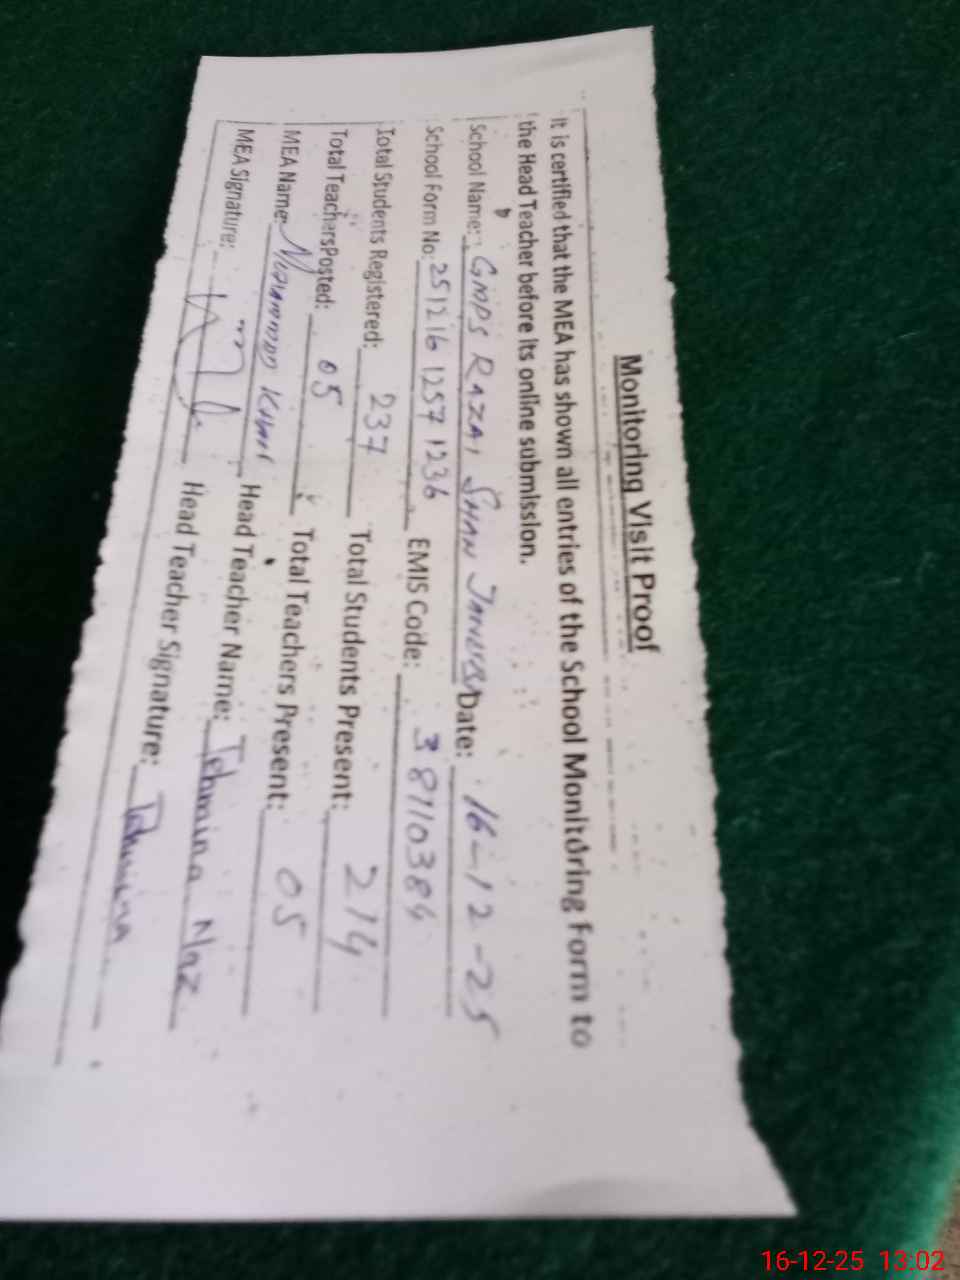 Monitoring Visit Proof
It is certified that the MEA has shown all entries of the School Monitoring Form to
the Head Teacher before its online submission.
School Name: GMPS RAZAI SHAN Date: 16-12-25
School Form No: 251216 1257 1236 EMIS Code: 38110384
Total Students Registered: 237 Total Students Present: 214
Total Teachers Posted: 05 Total Teachers Present: 05
MEA Name: Muhammad Khan Head Teacher Name: Tehmina Naz
MEA Signature: Head Teacher Signature: Tehmina
16-12-25 13:02